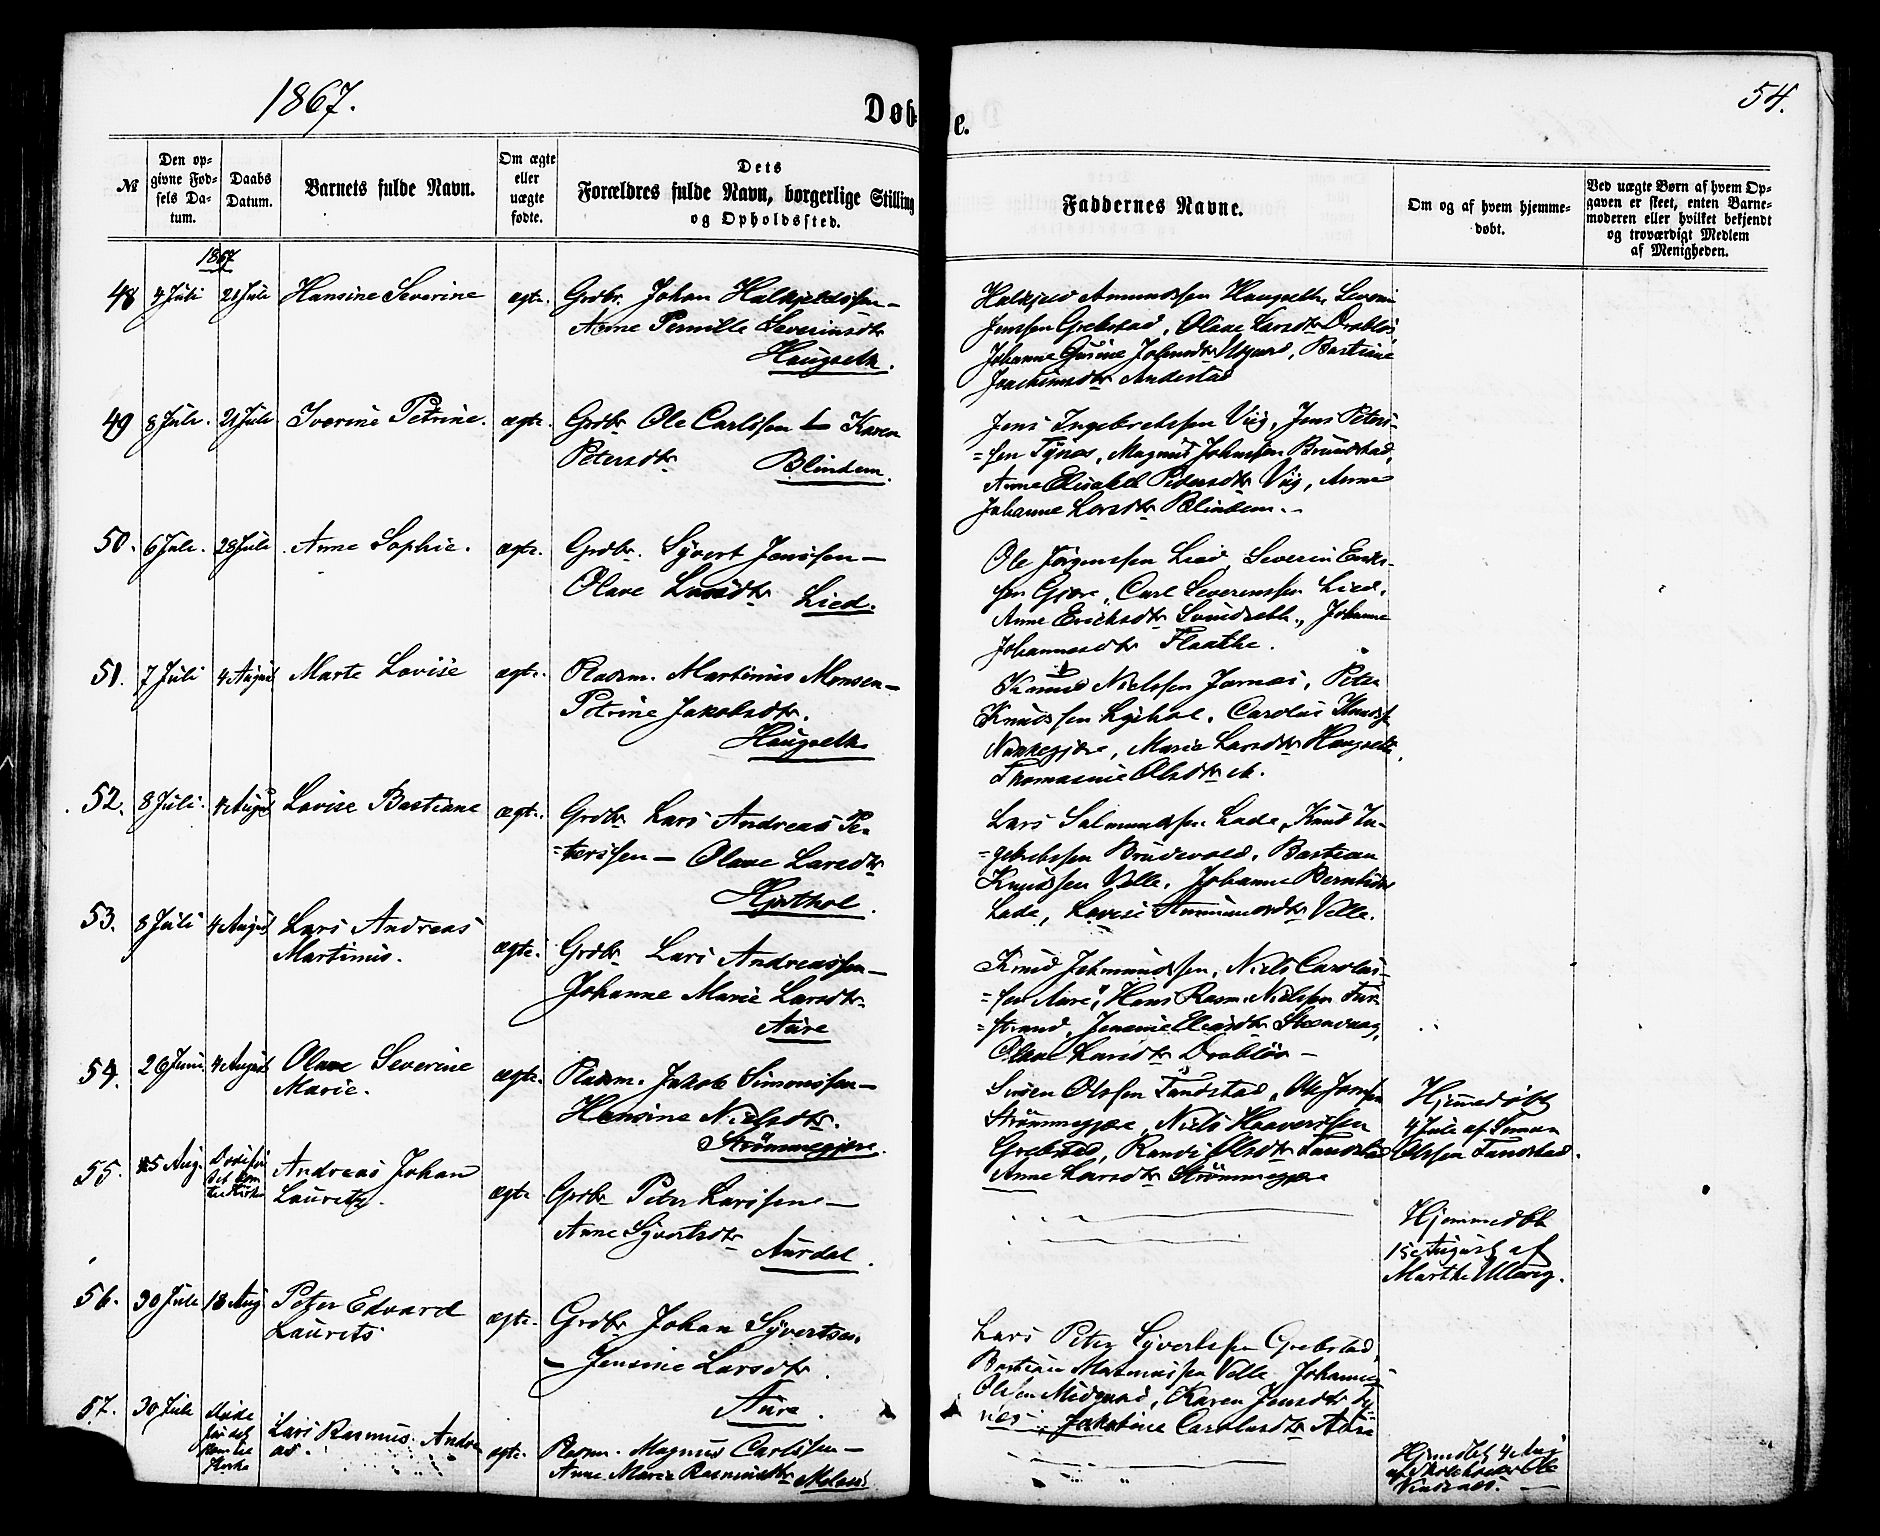 1867.
Døb-
e.
54.
№
Den op-
givne Fød-
sels Da-
tum.
Daabs
Datum.
Barnets fulde Navn.
Om ægte
eller
uægte
fødte.
Dets
Forældres fulde Navn, borgerlige Stilling
og Opholdssted.
Faddernes Navne.
Om og af hvem hjemme-
døbt.
Ved uægte Børn af hvem Op-
gaven er skeet, enten Barne-
moderen eller hvilket bekjendt
og troværdigt Medlem
af Menigheden.
1867
48 4 Juli 21 Juli Hansine Severine ægte. Grdbr. Johan Halkjeldssen —
Anne Pernille Severinsdtr
Haugseth.
Halkjeld Amundssen Haugseth, Severin
Jenssen Grebstad, Olave Larsdtr Drabløs
Johanne Gurine Johnsdtr Usgaard, Bastiane
Joachimsdtr Andestad
49 8 Juli. 21 Juli Iverine Petrine. ægte. Grdbr Ole Carlssen & Karen
Petersdtr Blindem.
Jens Ingebretssen Viig, Jens Peters-
=sen Tynes, Magnus Johnssen Brundstad,
Anne Elisabet Pedersdtr Viig, Anne
Johanne Larsdtr Blindem.
50. 6 Juli. 28 Juli Anne Sophie. ægte. Grdbr. Syvert Jonssen —
Olave Larsdtr Lied.
Ole Jørgenssen Lied, Severin Eriks-
sen Gjære, Carl Severinssen Lied,
Anne Eriksdtr Svindseth, Johanne
Johannesdtr Flaathe.
51. 7 Juli 4 August Marte Lovise ægte. Plasm. Martinus Monsen —
Petrine Jakobsdtr.
Haugseth
Knud Nielssen Jarnes, Peter
Knudssen Lyshol, Carolus Knudss
Nakkegjære, Marie Larsdtr Haugseth,
Thomasine Olsdtr ib.
52. 8 Juli. 4 August Lovise Bastiane ægte. Grdbr Lars Andreas Pe-
=terssen — Olave Larsdtr
Hjorthol.
Lars Salmundssen Lade, Knud In-
=gebretssen Brudevold, Bastian
Knudssen Velle, Johanne Berntsdtr
Lade, Lovise Amundsdtr Velle.
53. 8 Juli 4 August Lars Andreas
Martinus. ægte. Grdbr Lars Andreassen —
Johanne Marie Larsdtr.
Aure
Knud Johnsen, Niels Carolus-
=sen Aure, Hans Rasm. Nielssen Tu-
=strand, Jensine Eliasdtr Steenvaag,
Olave Larsdtr Drabløs —
54. 26 Juni 4 August Olave Severine
Marie. ægte. Plasm. Jakob Simonssen —
Hansine Nielsdtr.
Strømmegjære.
Simen Olssen Tandstad, Ole Jonssen
Strømmegjære, Niels Haaverssen
Grebstad, Randi Olsdtr Tandstad
Anne Larsdtr Strømmegjære
Hjemedøbt
4 Juli af Simen
Olssen Tandstad.
55. 15 Aug. Død før
det kom
til Kirke Andreas Johan
Lauritz. ægte. Grdbr Peter Larssen —
Anne Syvertsdtr
Aurdal.
Hjemmedøbt
15 August af
Marthe Ullavig.
56. 30 Juli 18 Aug. Peter Edvard
Laurits ægte. Grdbr Johan Syvertsen.
— Jensine Larsdtr.
Aure.
Lars Peter Syvertssen Grebstad,
Bastian Martinussen Velle, Johannes
Olsen Midgaard, Karen Jensdtr Ty-
nes, Jakobine Carolusdtr Aure
57. 30 Juli Døde
før det
kom til
Kirke Lars Rasmus Andre-
as. ægte. Plasm. Magnus Carlssen —
Anne Marie Rasmusdtr
Hjemdøbt 4 Aug
af Skoleholder Ole